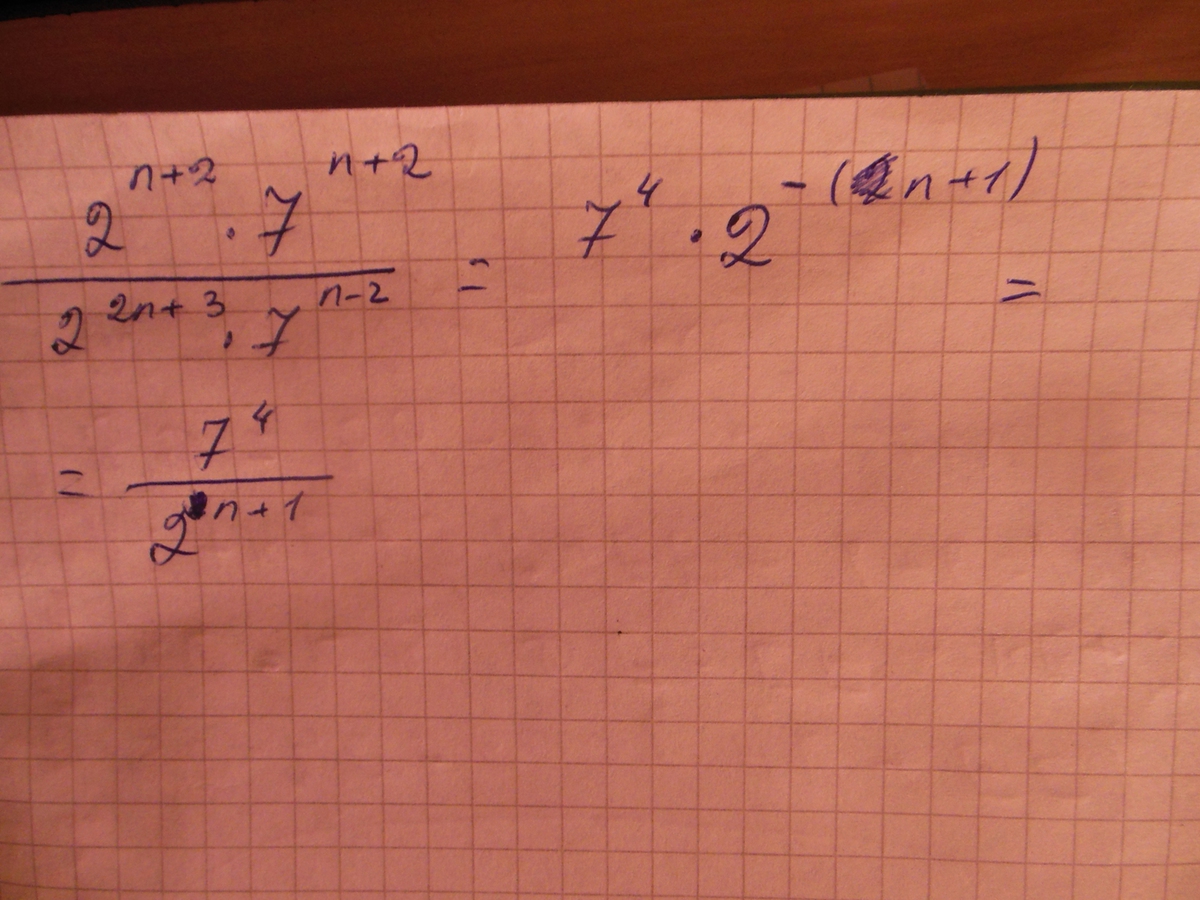 2^{n+2} · 7^{n+2} / 2^{2n+3} · 7^{n-2} = 7^4 · 2^{-(n+1)} =
= 7^4 / 2^{n+1}